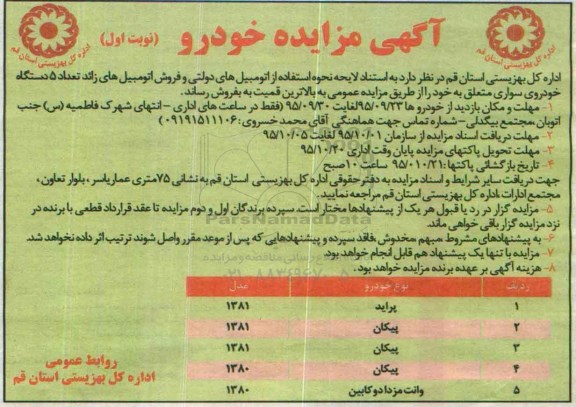 آگهی مزایده خودرو (نوبت اول)
اداره کل بهزیستی استان قم
اداره کل بهزیستی استان قم
اداره کل بهزیستی استان قم در نظر دارد به استناد لایحه نحوه استفاده از اتومبیل های دولتی و فروش اتومبیل های زائد تعداد ۵ دستگاه
خودروی سواری متعلق به خود را از طریق مزایده عمومی به بالاترین قیمت به بفروش رساند..
۱- مهلت و مکان بازدید از خودرو ها ۹۵/۰۹/۲۳ لغایت ۹۵/۰۹/۳۰ (فقط در ساعت های اداری - انتهای شهرک فاطمیه (س) جنب
اتوبان، مجتمع بیگدلی - شماره تماس جهت هماهنگی آقای محمد خسروی: ۰۹۱۹۱۵۱۱۱۰۶)
۲- مهلت دریافت اسناد مزایده از سازمان ۹۵/۱۰/۰۱ لغایت ۹۵/۱۰/۰۵
۳- مهلت تحویل پاکتهای مزایده پایان وقت اداری ۹۵/۱۰/۲۰
۴- تاریخ بازگشائی پاکتها: ۹۵/۰۱۰/۲۱ ساعت ۱۰ صبح
جهت دریافت سایر شرایط و اسناد مزایده به دفتر حقوقی اداره کل بهزیستی استان قم به نشانی ۷۵ متری عماریاسر، بلوار تعاون،
مجتمع ادارات، اداره کل بهزیستی استان قم مراجعه نمایید.
۵- مزایده گزار در رد یا قبول هر یک از پیشنهادها مختار است. سپرده برندگان اول و دوم مزایده تا عقد قرارداد قطعی با برنده در
نزد مزایده گزار باقی خواهی ماند.
۶- به پیشنهادهای مشروط، مبهم، مخدوش، فاقد سپرده و پیشنهادهایی که پس از موعد مقرر واصل شوند ترتیب اثر داده نخواهد شد.
۷- مزایده با تنها یک پیشنهاد هم قابل انجام خواهد بود.
۸- هزینه آگهی بر عهده برنده مزایده خواهد بود.
ردیف نوع خودرو مدل
۱ پراید ۱۳۸۱
۲ پیکان ۱۳۸۱
۳ پیکان ۱۳۸۱
۴ پیکان ۱۳۸۰
۵ وانت مزدا دو کابین ۱۳۸۰
روابط عمومی
اداره کل بهزیستی استان قم
ParsNamadData